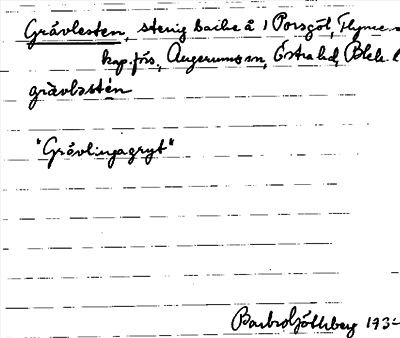 Grävlesten, stenig backe å 1 Porsgöl, Flyme
kap. förs, Augerums sn, Östra hd, Blek. l
grävləstén
"Grävlingagryt"
193